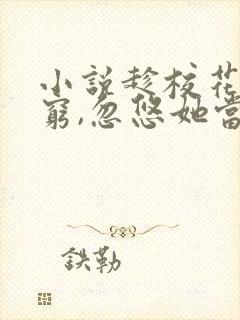 小說趁校花
窮,忽悠她當
鉄勒